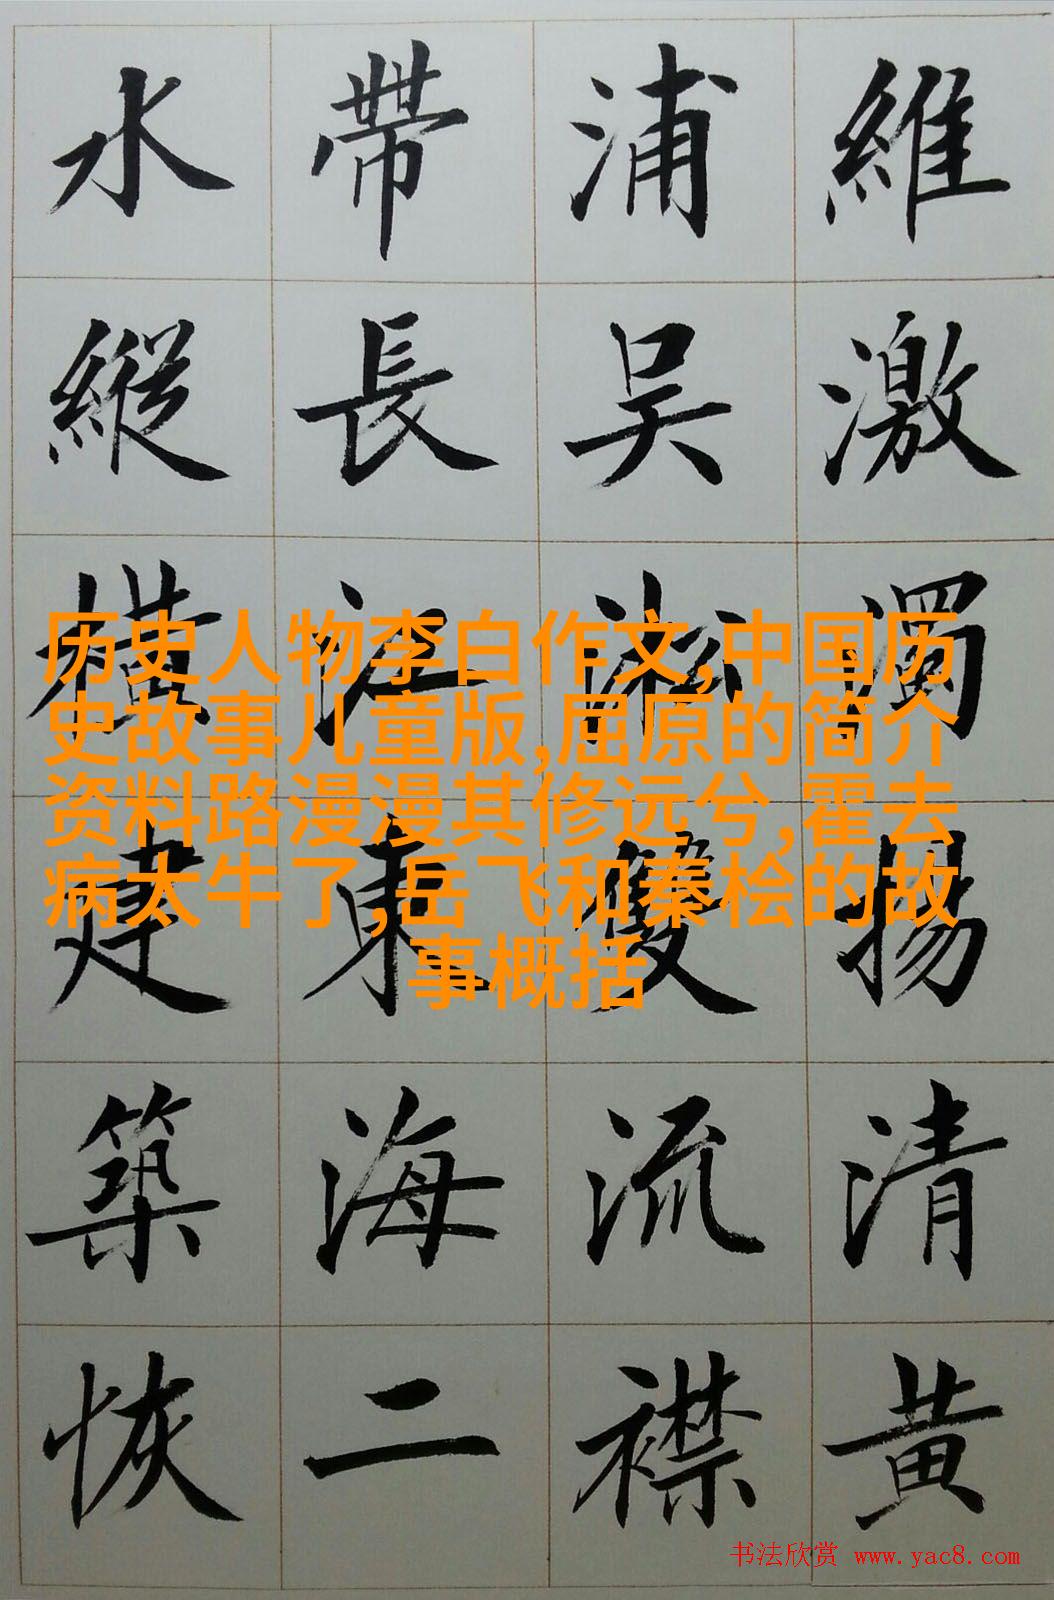 維激濁揚清黃
浦吳淞雙流襟
帶長江東海二
水縱橫建築恢
历史人物李白作文,中国历
史故事儿童版,屈原的简介
资料路漫漫其修远兮,霍去
病太牛了,岳飞和秦桧的故
事概括
书法欣赏 www.yac8.com